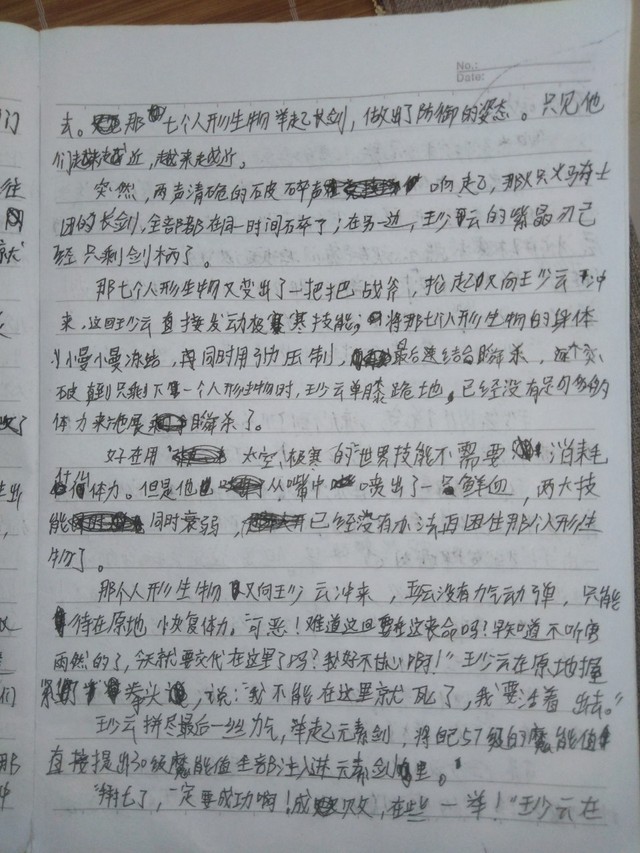 No.:
Date:
们
去。那七个人形生物举起长剑，做出了防御的姿态。只见他
们越来越近，越来越近。
往
突然，两声清脆的破碎声响起，那火马骑士
团的长剑，全部都在同一时间碎了；在另一边，王少云的紫晶刃已
经只剩剑柄了。
那七个人形生物又变出了一把把战斧，抡起又向王少云冲
来，这回王少云直接发动极寒技能，将那七个人形生物的身体
慢慢冻结，再同时用引力压制，最后连结合瞬杀，逐个突
破，直到只剩下一个人形生物时，王少云单膝跪地，已经没有足够的
体力来施展瞬杀了。
好在用太空极寒的世界技能不需要消耗
体力。但是他也从嘴中喷出了一口鲜血，两大技
能同时衰弱，已经没有办法再困住那个人形生
物了。
那个人形生物又向王少云冲来，王少云没有力气动弹，只能
待在原地恢复体力。“可恶！难道这回要在这丧命吗？早知道不听雷
雨然的了，今天就要交代在这里了吗？我好不甘心啊！”王少云在原地握
紧了拳头，说：“我不能在这里就死了，我要活着出去。”
们
王少云拼尽最后一丝力气，举起元素剑，将自己57级的魔能值
那
直接提出30级魔能值全部注入进元素剑里。
“拜托了，一定要成功啊！成败，在此一举！”王少云在